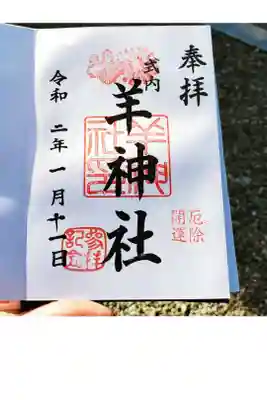 奉拝
式内
羊神社
羊神社印
厄除
開運
令和二年一月十一日
参拝
記念